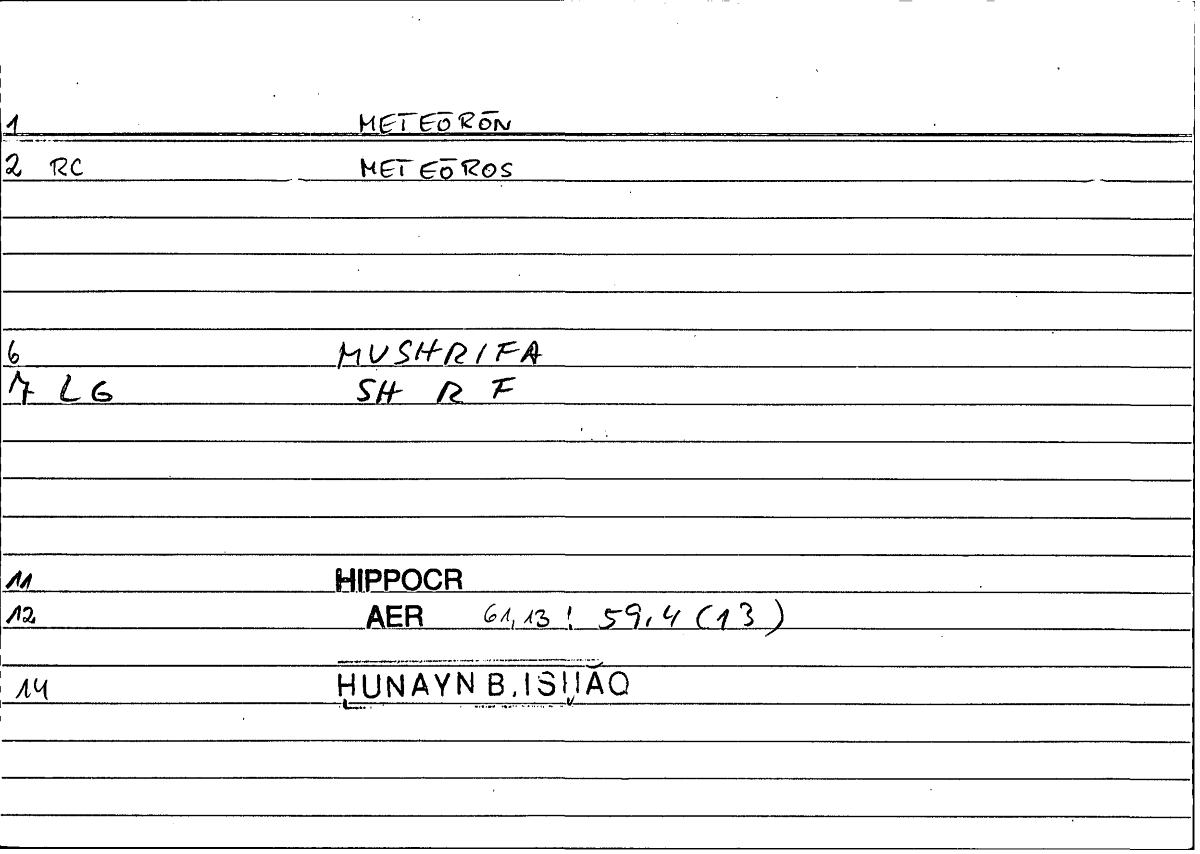 1 METEŌRŌN
2 RC METEŌROS
6 MUSHRIFA
7 LG SH R F
11 HIPPOCR
12 AER 61,13! 59,4 (13)
14 HUNAYN B.ISḤĀQ